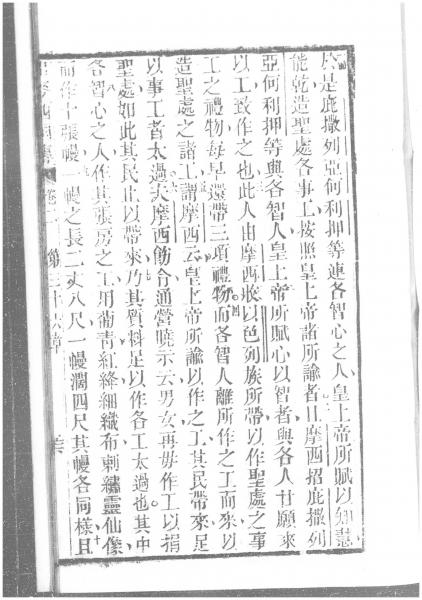 於是庇撒列亞何利押等連各智心之人皇上帝所賦以知慧
能乾造聖處各事工按照皇上帝諸所諭者且摩西招庇撒列
亞何利押等與各智人皇上帝所賦心以智者與各人甘願來
以工致作之也此人由摩西收以色列族所帶以作聖處之事
工之禮物每早還帶三項禮物而各智人離所作之工而來以
造聖處之諸工謂摩西云皇上帝所諭以作之工其民帶來足
以事工者太過大摩西飭令通營曉示云男女再毋作工以捐
聖處如此其民止以帶來乃其質料足以作各工太過也其中
各智心之人作其張房之工用葡青紅絳細織布刺繡靈仙像
而作十張幔一幔之長二丈八尺一幔濶四尺其幔各同樣且
卷二 第三十六章